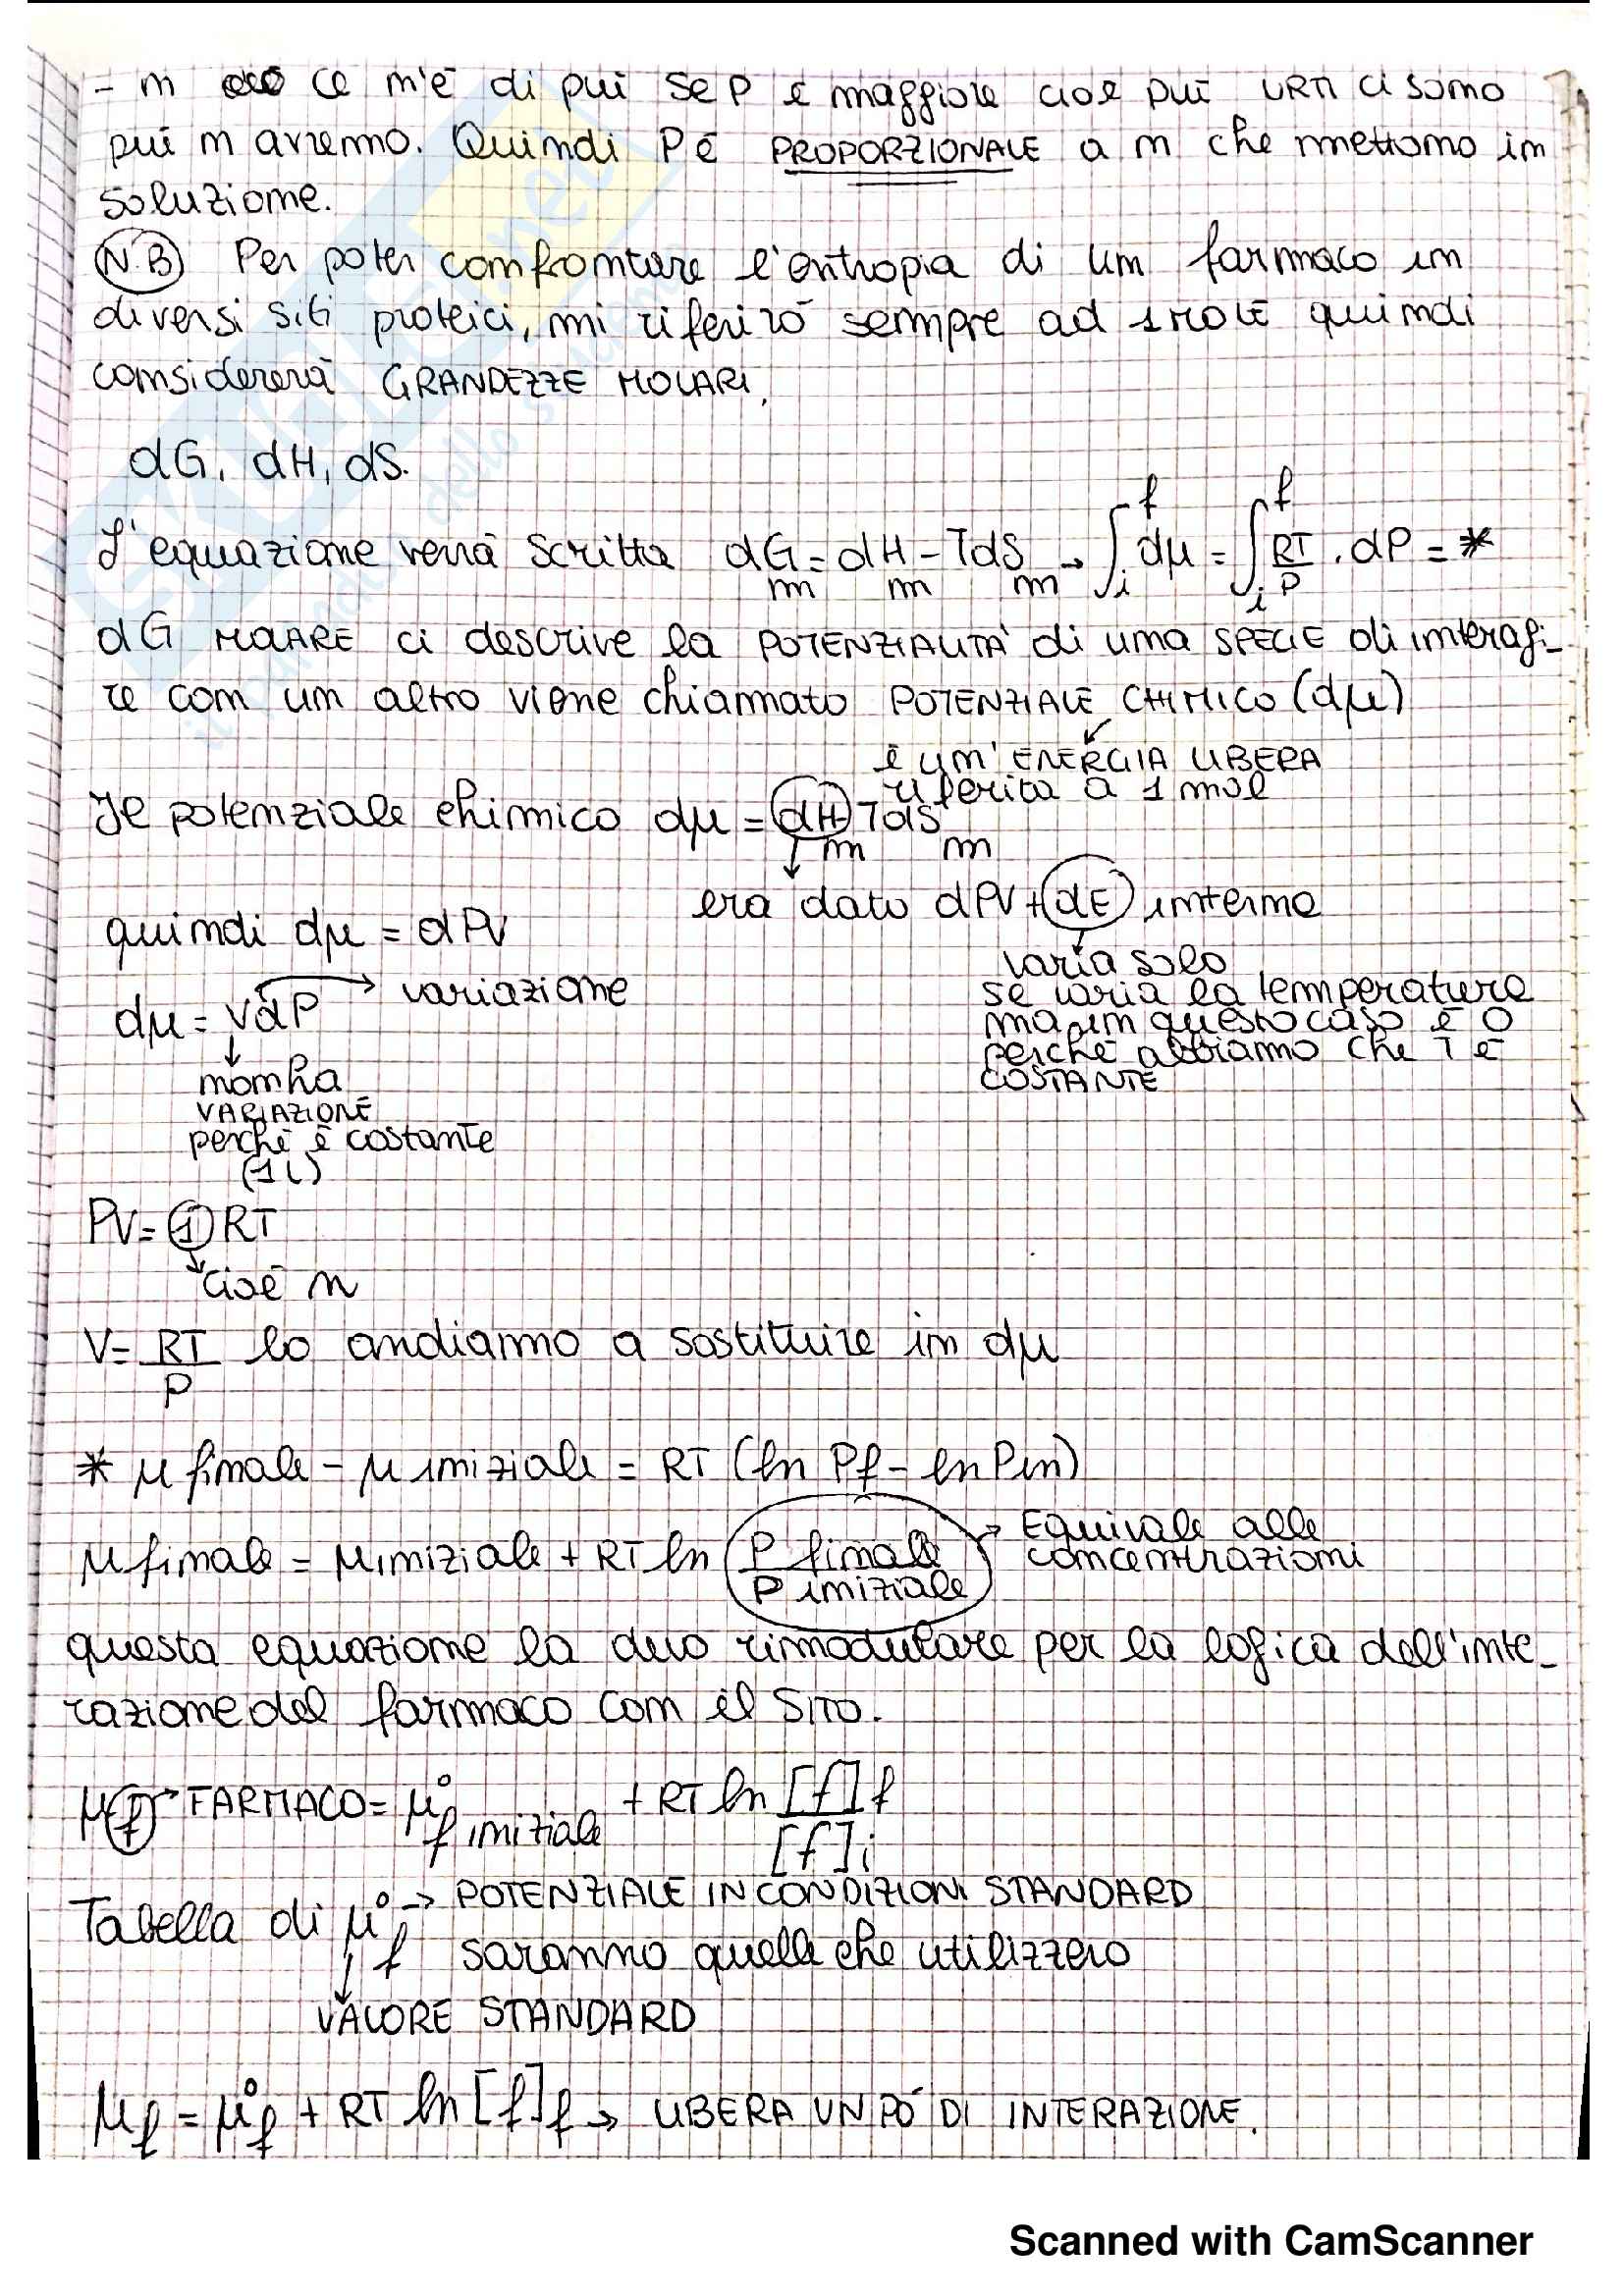 - n ce n'è di più se P è maggiore cioè più URTI ci sono
più n avremo. Quindi P è PROPORZIONALE a n che mettiamo in
soluzione.
N.B Per poter confrontare l'entropia di un farmaco in
diversi siti proteici, mi riferirò sempre ad 1 MOLE quindi
considererà GRANDEZZE MOLARI.
dG, dH, dS.
L'equazione verrà scritta dGm = dHm - TdSm → ∫if dμ = ∫if RT/P . dP = *
dG MOLARE ci descrive la POTENZIALITÀ di una SPECIE di interagi-
re con un altro viene chiamato POTENZIALE CHIMICO (dμ)
è un'ENERGIA LIBERA
riferita a 1 mol
Il potenziale chimico dμ = dHm TdSm
era dato dPV + dE interno
quindi dμ = dPV
varia solo
se varia la temperatura
ma in questo caso è 0
perchè abbiamo che T è
COSTANTE
dμ = VdP → variazione
non ha
VARIAZIONE
perchè è costante
(1L)
PV = 1 RT
cioè n
V = RT/P lo andiamo a sostituire in dμ
* μ finale - μ iniziale = RT (ln Pf - ln Pin)
μ finale = μ iniziale + RT ln P finale/P iniziale → Equivale alle
concentrazioni
questa equazione la devo rimodulare per la logica dell'inte-
razione del farmaco con il SITO.
μf → FARMACO = μ°f iniziale + RT ln [f]f/[f]i
Tabella di μ°f → POTENZIALE IN CONDIZIONI STANDARD
saranno quelle che utilizzerò
VALORE STANDARD
μf = μ°f + RT ln [f]f → LIBERA UN PO' DI INTERAZIONE.
Scanned with CamScanner